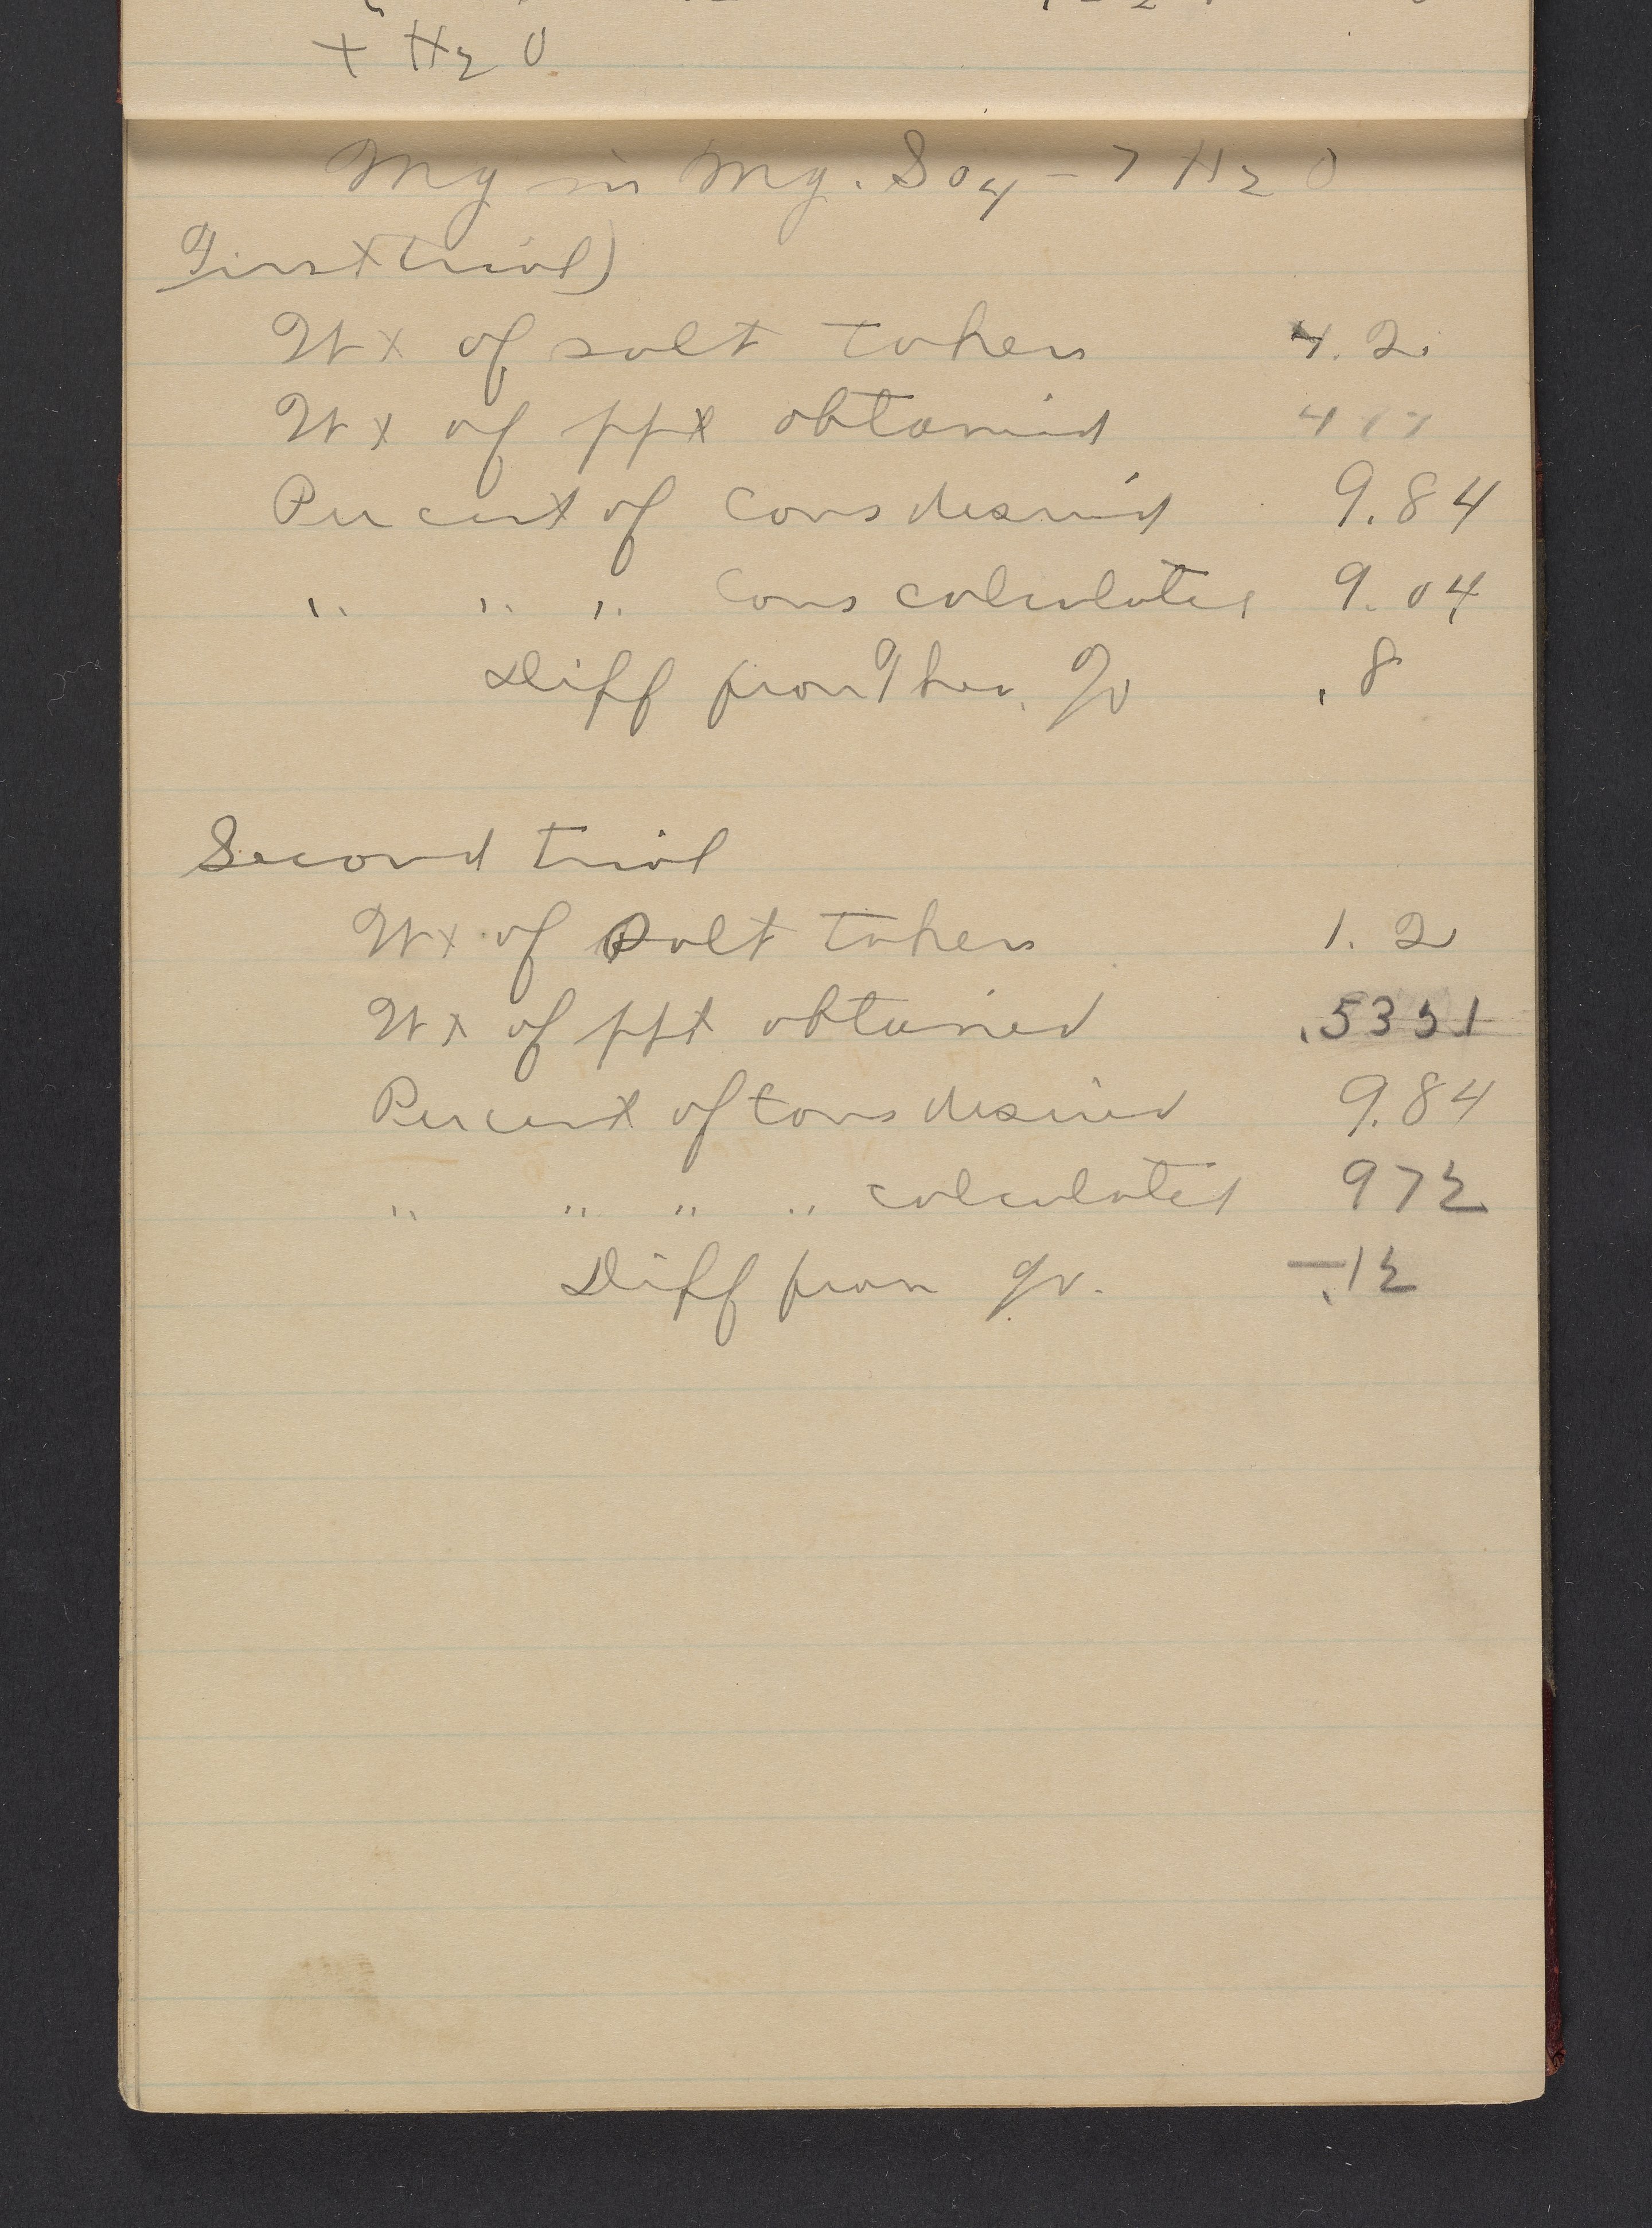 + H2 O
Mg in Mg. So4 - 7 H2 O
First trial)
Wt of salt taken 4.2.
Wt of ppt obtained
Per cent of Cons desired 9.84
" " " Cons calculated 9.04
Diff from Theo. % .8
Second trial
Wt of Salt taken 1.2
Wt of ppt obtained .5351
Percent of Cons desired 9.84
" " " " calculated 972
Diff from %. -.12